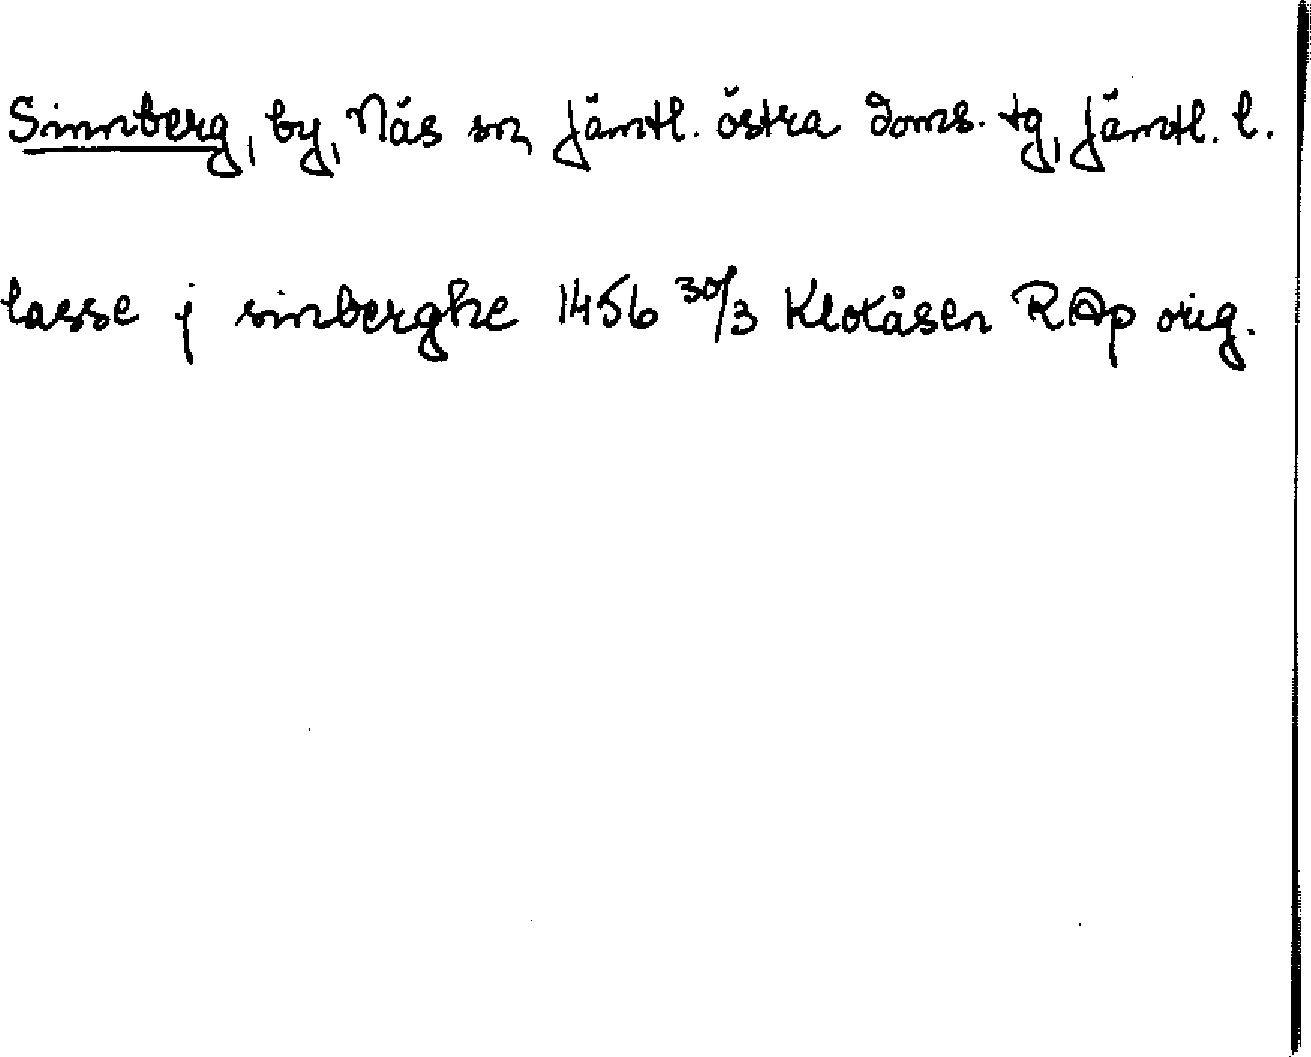 Sinnberg, by, Näs sn, Jämtl. östra doms. tg, Jämtl. l.
lasse j sinberghe 1456 30/3 Klokåsen RAp orig.